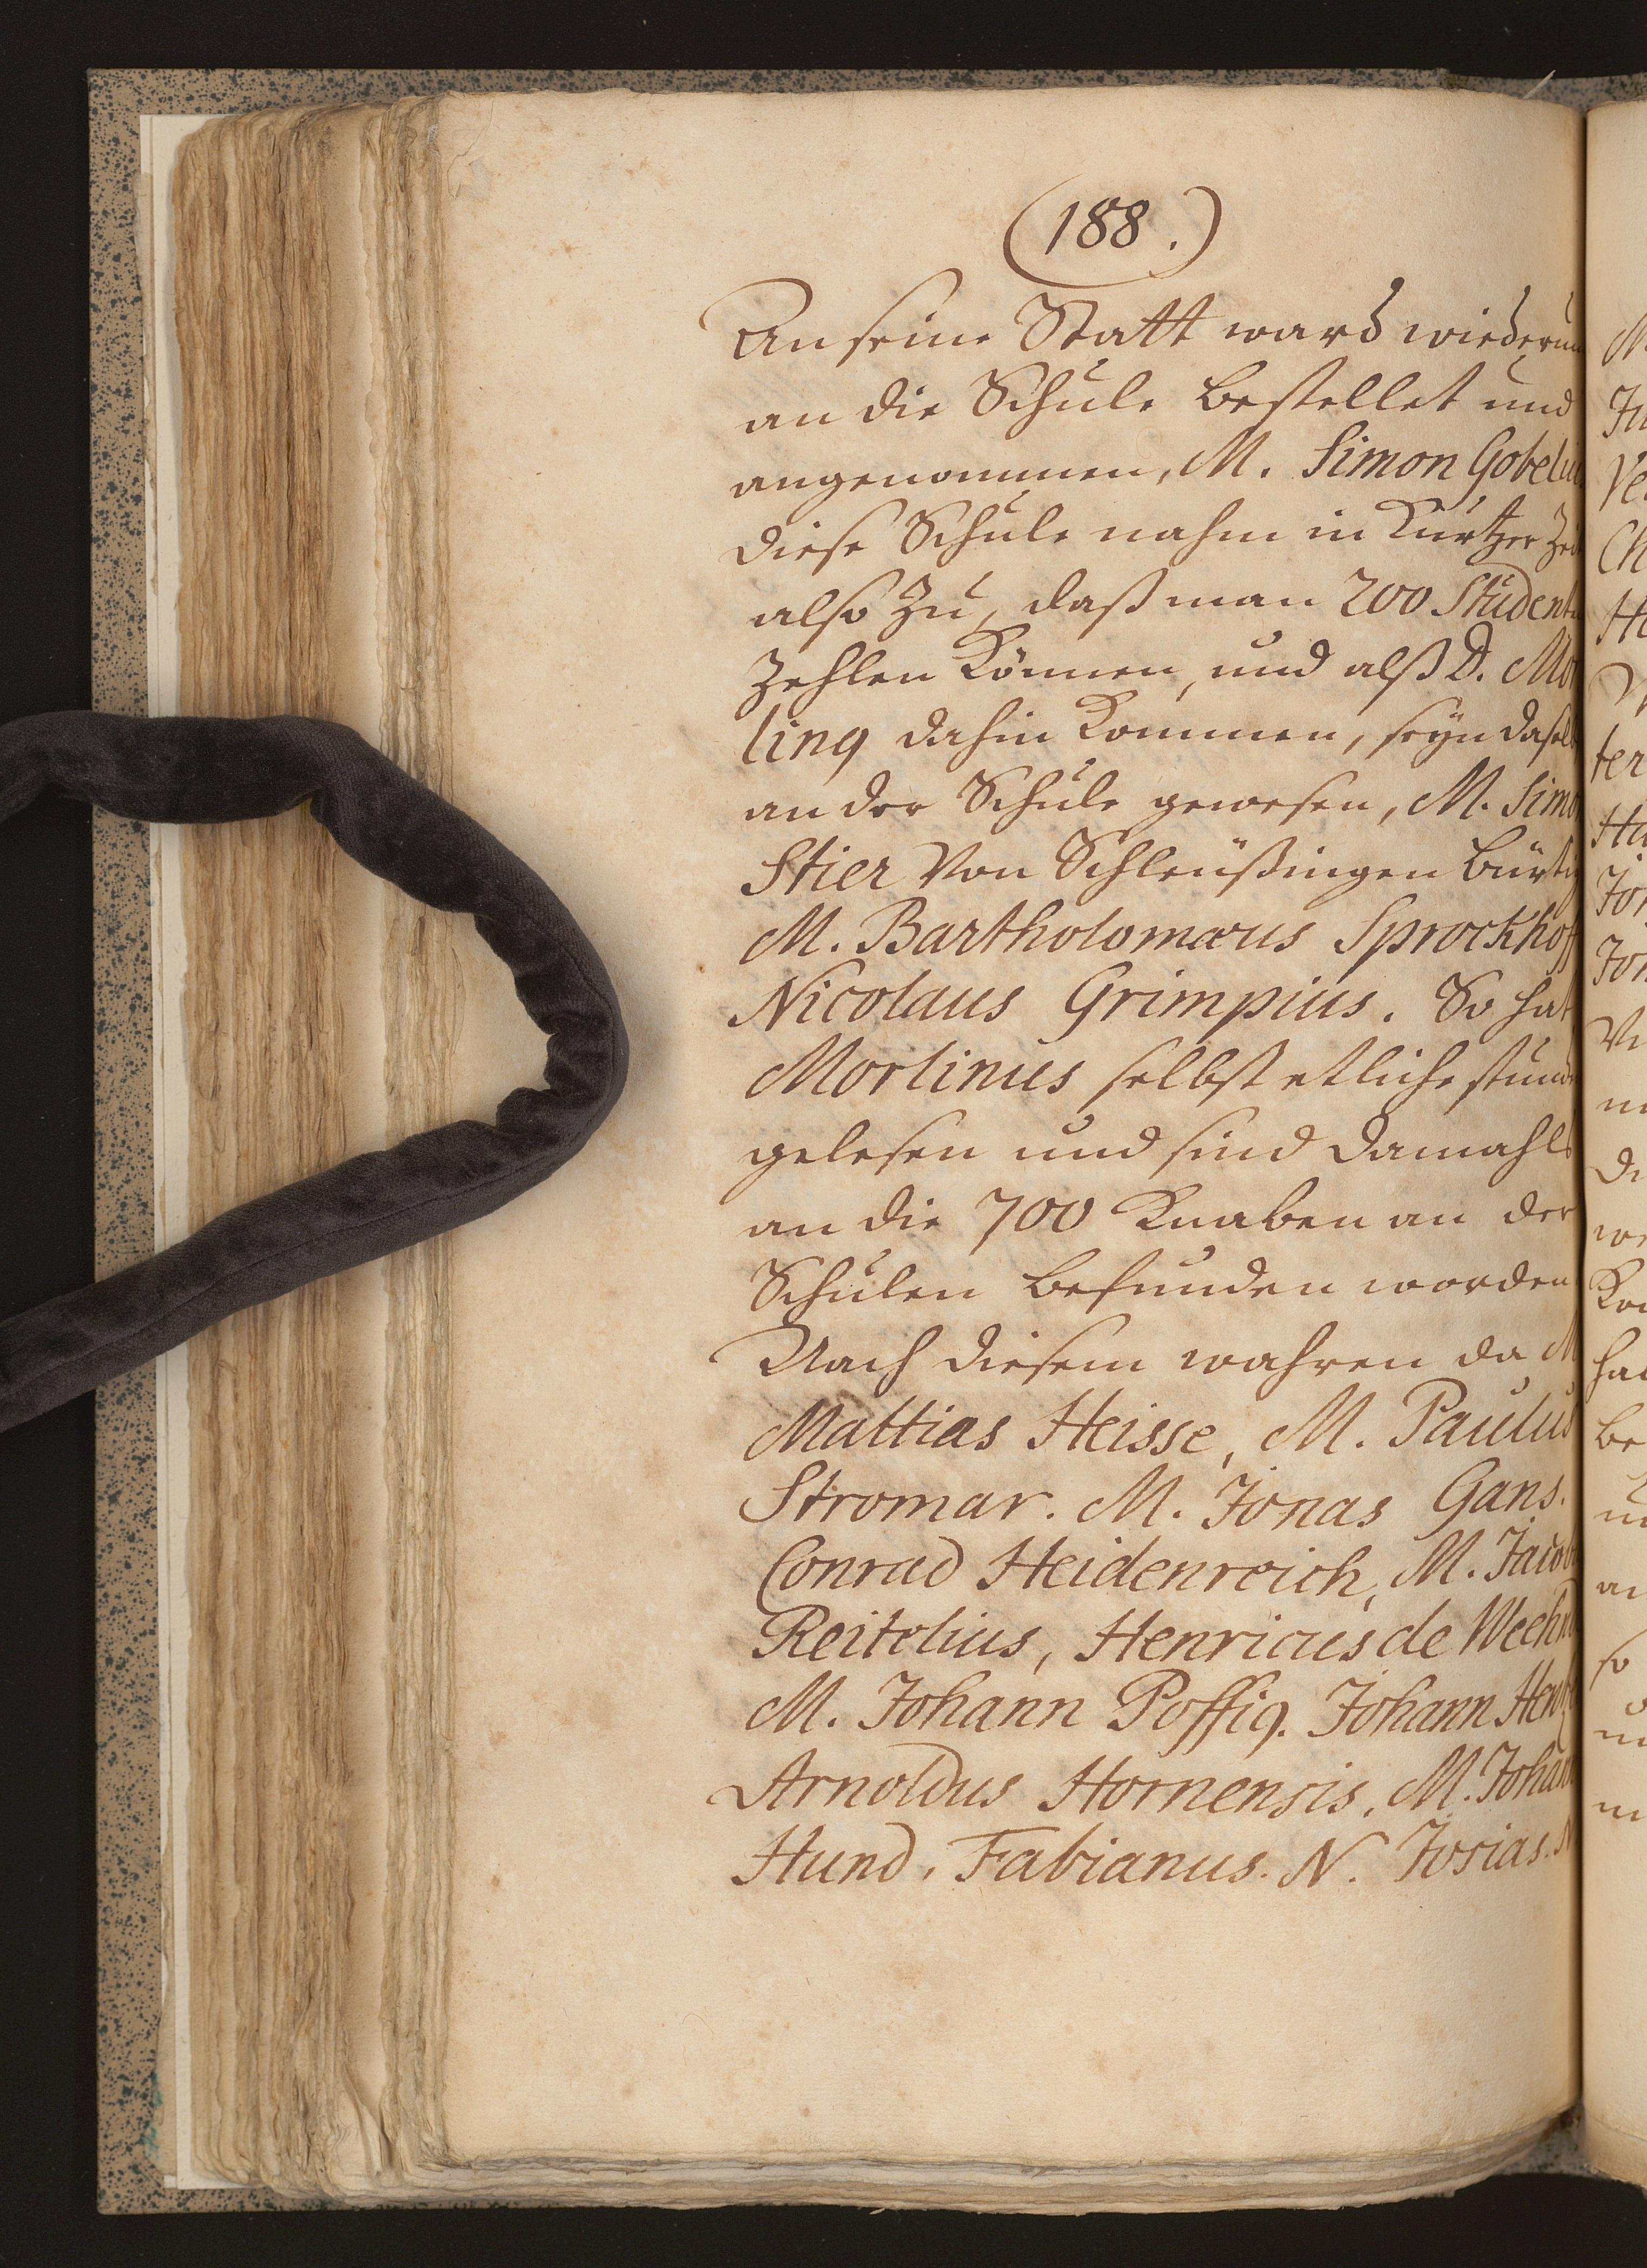 (188.)
An seine Statt ward wiederum
an die Schule bestellet und
angenommen, M. Simon Gobeliu
diese Schule nahm in Kurtzer Zei
also zu, daß man 200 Student
Zehlen Können, und alß D. Mör
ling dahin Kommen, seyn dasel
an der Schule gewesen, M. Simo
Stier Von Schleüßingen bürti
M. Bartholomæus Sprockhof
Nicolaus Grimpius. So hat
Morlinus selbst etliche stund
gelesen und sind damahls
an die 700 Knaben an der
Schulen befunden worden
Nach diesem wahren da M
Mattias Heisse, M. Paulus
Stromar. M. Jonas Gans.
Conrad Heidenreich, M. Jacob
Reitelius, Henricus de Weehn
M. Johann Poffig. Johann Hen
Arnoldus Hornensis, M. Johan
Hund, Fabianus. N. Josias. N